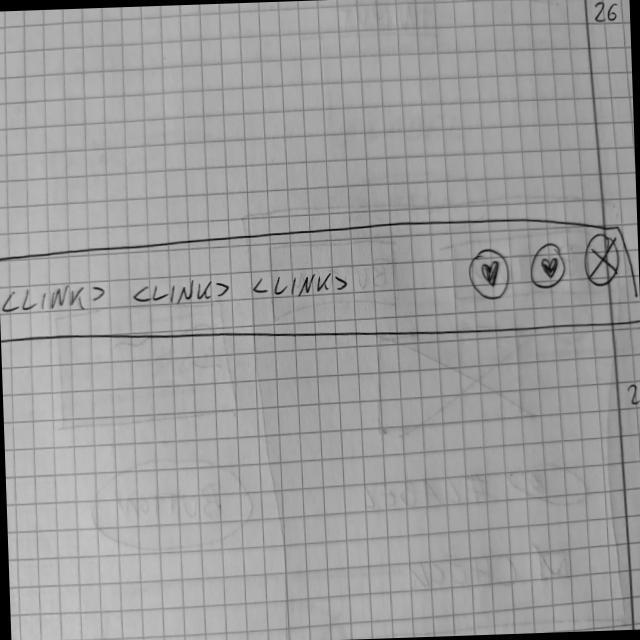 26
<LINK> <LINK> <LINK>
2